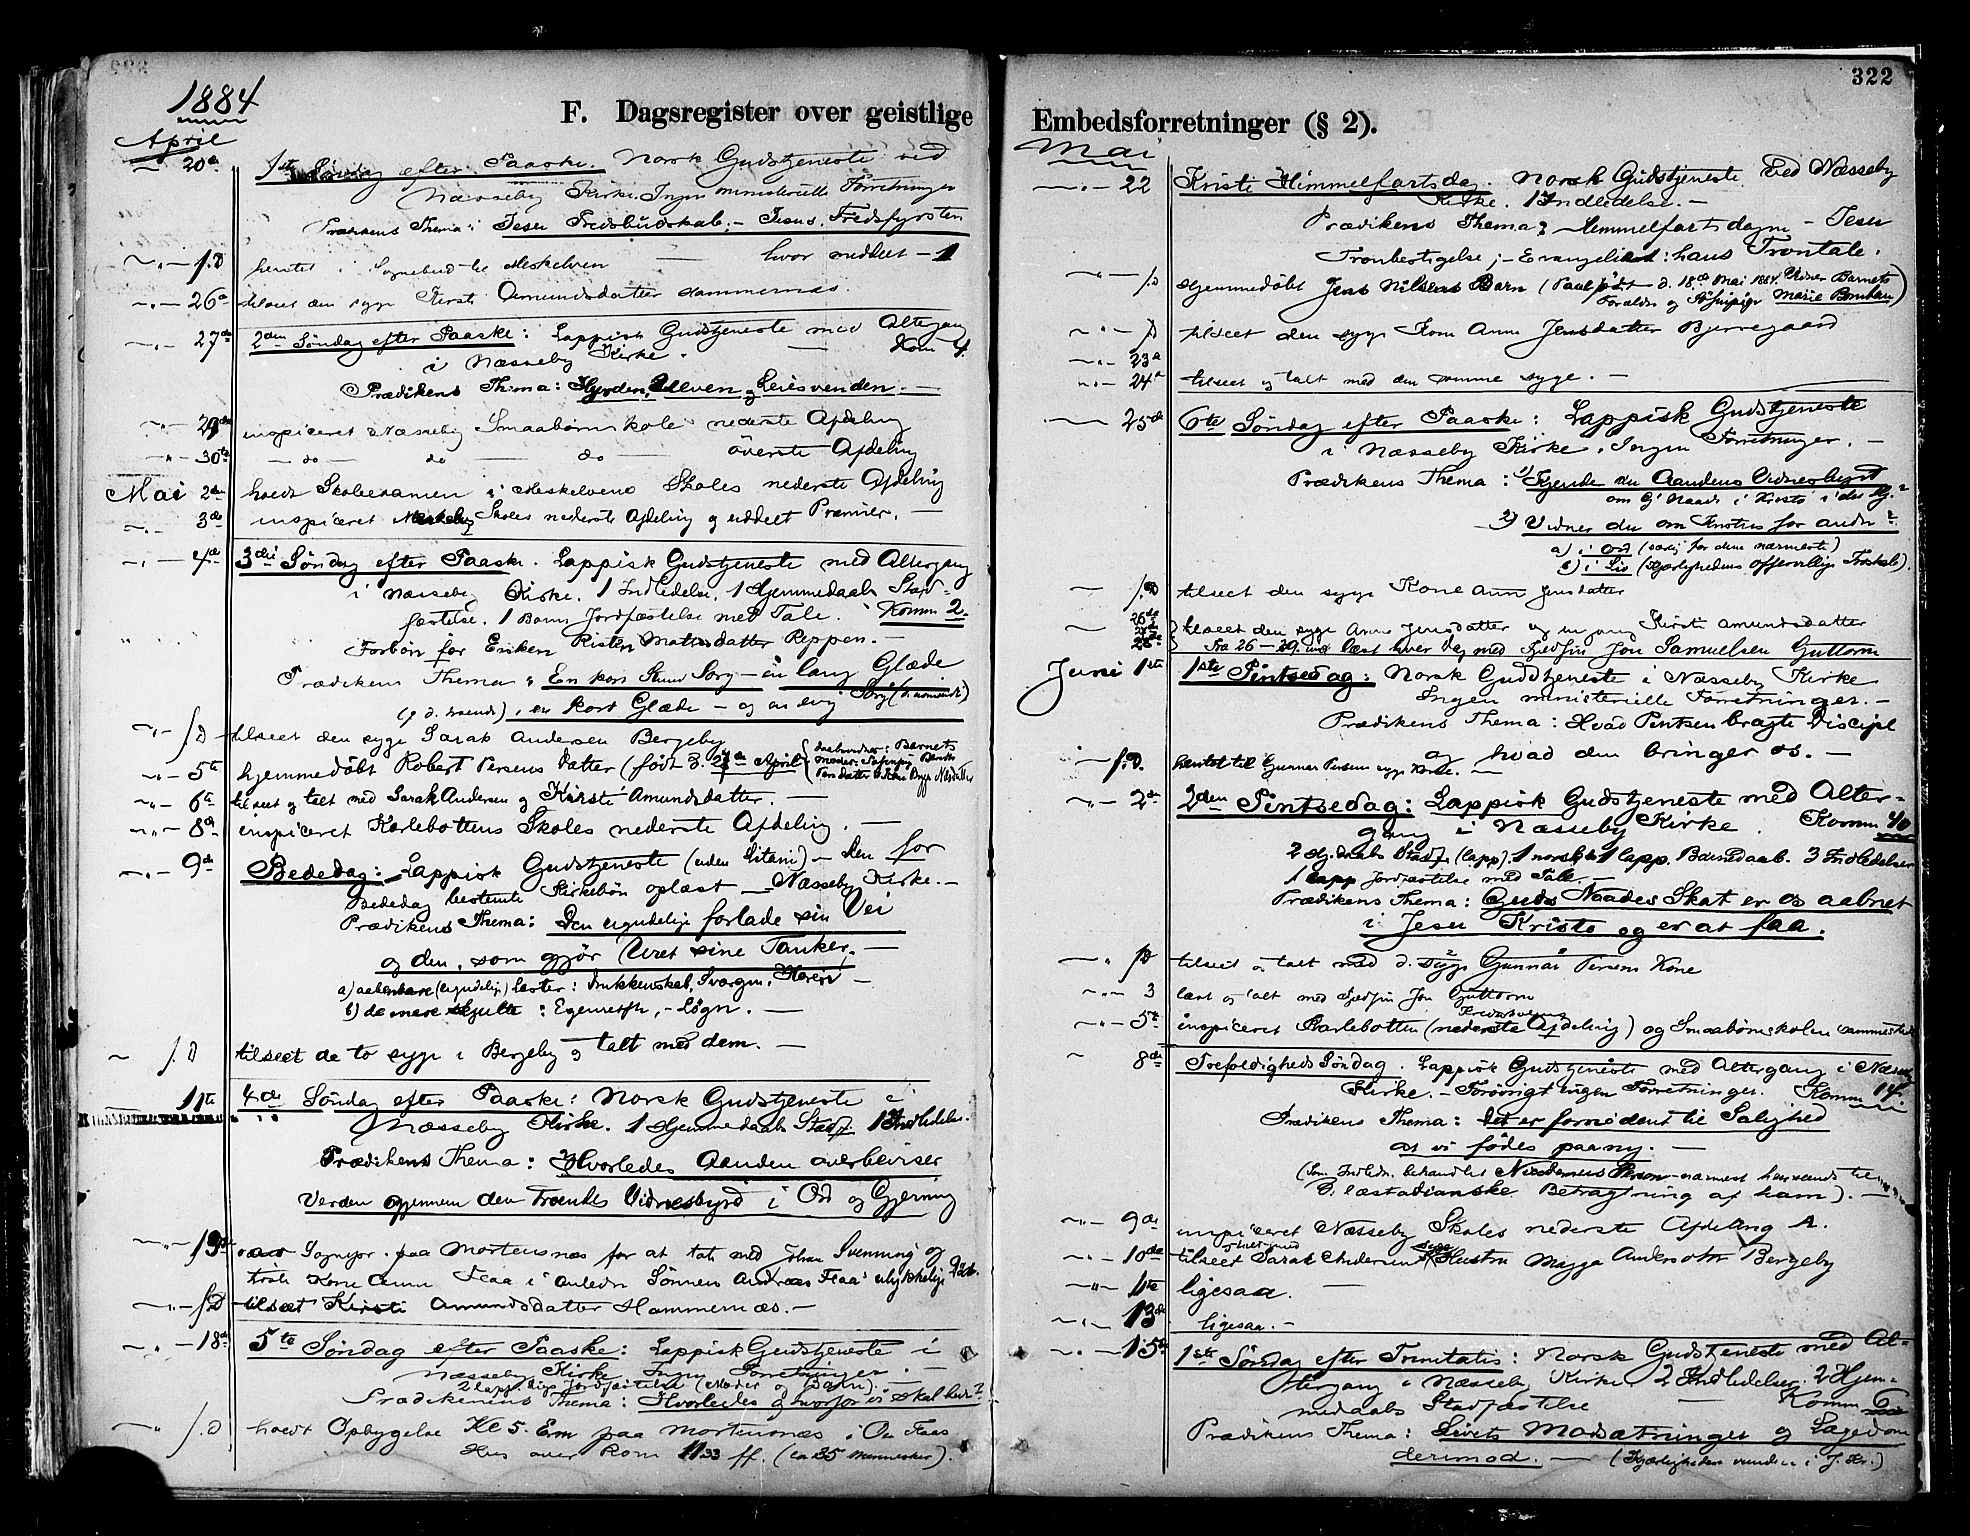 322
1884
F. Dagsregister over geistlige
Embedsforretninger (§ 2).
April
20de 1ste Søndag efter Paaske. Norsk Gudstjeneste ved
Næsseby Kirke. Ingen ministerielle Forretninger
Prækens Thema: Jesu Fredsbudskab; – Jesus, Fredsfyrsten
f.D hentet i Sognebud til Meskelven — hvor meddelt – 1
26de tilseet den syge Kirsti Amundsdatter Hammernæs.
27de 2den Søndag efter Paaske: Lappisk Gudstjeneste med Altergang
i Næsseby Kirke. — Kom 4.
Prædikens Thema: Hyrden, Ulven og Leiesvenden. —
29de inspiceret Næsseby Smaabørnskole nederste Afdeling
30te — do — do — do — överste Afdeling
Mai 2den holdt Skoleexamen i Meskelvens Skoles nederste Afdeling
3de inspiceret Næsseby Skoles nederste Afdeling og uddelt Præmier. —
4de 3die Søndag efter Paaske. Lappisk Gudstjeneste med Altergang
i Næsseby Kirke. 1 Indledelse, 1 Hjemmedaabs Stad-
fæstelse. 1 Barns Jordfæstelse med Tale. Komm 2.
Forbön for Enken Risten Mattisdatter Reppen. —
Prædikens Thema: En kort Stund Sorg – en lang Glæde
en kort Glæde – og en evig Sorg
f.D tilseet den syge Sarak Andersen Bergeby
5te hjemmedøbt Robert Persens Datter (født d. 27de April
6te tilseet og talt med Sarak Andersen og Kirsti Amundsdatter. —
8de inspiceret Karlebottens Skoles nederste Afdeling. —
9de Bededag: Lappisk Gudstjeneste (uden Litani) – den for
Bededag bestemte Kirkebön oplæst — Næsseby Kirke. —
Prædikens Thema: Den ugudelige forlade sin Vei
og den, som gjør Uret sine Tanker. —
a) aabenbare (ugudelige) Laster: Drukkenskab, Sværgen, Horeri —
b) de mere skjulte: Egenretfh, – Løgn. —
f.D tilseet de to syge i Bergeby og talt med dem. —
11te 4de Søndag efter Paaske: Norsk Gudstjeneste i
Næsseby Kirke. 1 Hjemmedaabs Stadf. 1 Indledelse.
Prædikens Thema: Hvorledes Aanden overbeviser
Verden gjennem den Troendes Vidnesbyrd i Ord og Gjerning
13de paa Mortensnæs for at tale med Johan Svenning og
Kone Ann Flaa i Anledn Sønnen Andreas Flaas ulykkelige Död.
f.D tilseet Kirsti Amundsdatter Hammernæs. —
18de 5te Søndag efter Paaske: Lappisk Gudstjeneste i
Næsseby Kirke Ingen Forretninger. —
2 lappiske Jordfæstelse (Moder og Barn).
Prædikenens Thema: Hvorledes og hvorfor vi skal bede?
f.D holdt Opbyggelse Kl 5. Em paa Mortensnæs i Ole Flaas
Hus over Rom 11.33 ff. (ca 35 Mennesker).
Mai
22 Kristi Himmelfartsdag. Norsk Gudstjeneste ved Næsseby
Kirke. 1 Indledelse. —
Prædikens Thema: Himmelfartsdagen – Jesu
Tronbestigelse; – Evangeliet: hans Trontale.
f.D Hjemmedøbt Jens Nilsens Barn (Paul født d. 18de Mai 1884. Vidner Barnets
Forældre og Marie
f.D tilseet den syge Kone Anne Jensdatter Bjerregaard
23de
24de tilseet og talt med den samme syge. —
25de 6te Søndag efter Paaske: Lappisk Gudstjeneste
i Næsseby Kirke. Ingen Forretninger. —
Prædikens Thema: 1) Kjender du Aandens Vidnesbyrd
om Gs Naade i Kristo i dit Hj.?
2) Vidner du om Kristus for andre?
a) i Ord (særlig for dine nærmeste)
b) i Liv (Kjærlighedens opofrvillige Troskab).
f.D tilseet den syge Kone Ann Jensdatter
26de
28de tilseet den syge Anne Jensdatter og en gang Kirsti Amundsdatter
Fra 26 – 29. læst hver Dag med Jon Samuelsen Guttorm
Juni 1ste 1ste Pintsedag: Norsk Gudstjeneste i Næsseby Kirke
Ingen ministerielle Forretninger. —
Prædikens Thema: Hvad Pintsen bragte Discipl
og hvad den bringer os. —
f.D. hentet til Gunnar Persens syge Kone. —
2den 2den Pintsedag: Lappisk Gudstjeneste med Alter-
gang i Næsseby Kirke. Komm 40
2 Hj. daabs Stadf. (lapp). 1 norsk & 1 lapp. Barnedaab. 3 Indledelser
1 lapp Jordfæstelse med Tale. —
Prædikens Thema: Guds Naades Skat er os aabnet
i Jesu Kristo og er at faa.
f.D tilseet og talt med d. syge Gunnar Persens Kone
3 læst og talt med Jon Guttorm
5te inspiceret Karlebotten (nederste Afdeling) og Smaabørnskolen sammesteds
8de Trefoldigheds Søndag. Lappisk Gudstjeneste med Altergang i Næsseby
Kirke. – Forövrigt ingen Forretninger. Komm 14.
Prædikens Thema: Det er fornödent til Salighed
at vi födes paany. —
(Som Indledn. behandlet Nicodemus Person – nærmest henvendt til
Læstadianske Betragtning af ham). —
9de inspiceret Næsseby Skoles nederste Afdeling A.
10de tilseet Sarak Andersens syge Hustru Magga Andersdtr Bergeby
11te ligesaa. —
13de ligesaa. —
15de 1ste Søndag efter Trinitatis: Norsk Gudstjeneste med Al-
tergang i Næsseby Kirke. 2 Indledelser. 2 Hjem-
medaabs Stadfæstelse — Komm 6
Prædikens Thema: Livets Modsætninger og Lægedom
derimod. — (Kjærligheden vunden i J. Kr.)